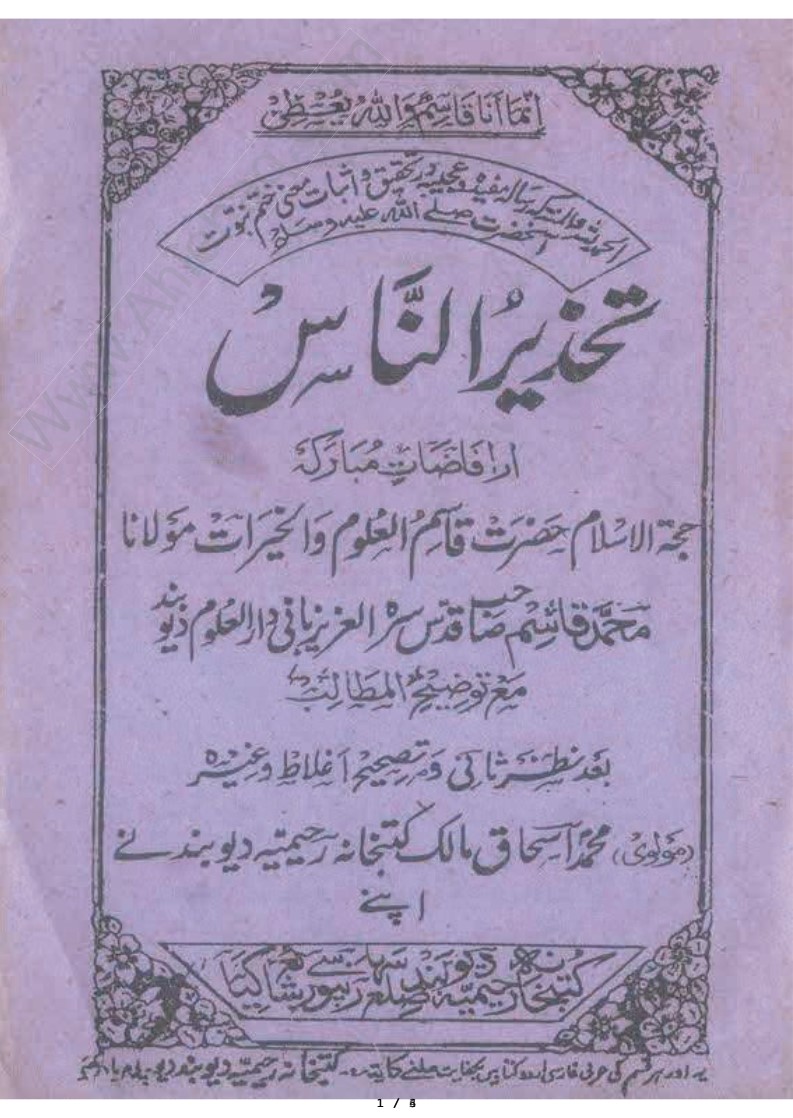 اِنَّمَا اَنَا قَاسِمٌ وَاللّٰهُ یُعْطِیْ
الحمد للہ والمنۃ کہ رسالہ مفیدہ وعجیبہ در تحقیق و اثبات معنی ختم نبوت
آنحضرت صلے اللہ علیہ وسلم
تحذیرُ النَّاسْ
از افاضاتِ مُبارکہ
حجۃ الاسلام حضرت قاسمُ العلوم وَالخیرات مَولانا
محمد قاسم صاحب قدس سرہ العزیز بانی دارالعلوم دیوبند
مع توضیح المطالب
بعد نظر ثانی وتصحیح اغلاط وغیرہ
(مولوی) محمد اسحاق مالک کتبخانہ رحیمیہ دیوبند نے
اپنے
کتبخانہ رحیمیہ دیوبند ضلع سہارنپور سے شائع کیا
یہ اور ہر قسم کی عربی فارسی اردو کتابیں بکفایت ملنے کا پتہ:۔ کتبخانہ رحیمیہ دیوبند یوپی
1 /
www.Ah